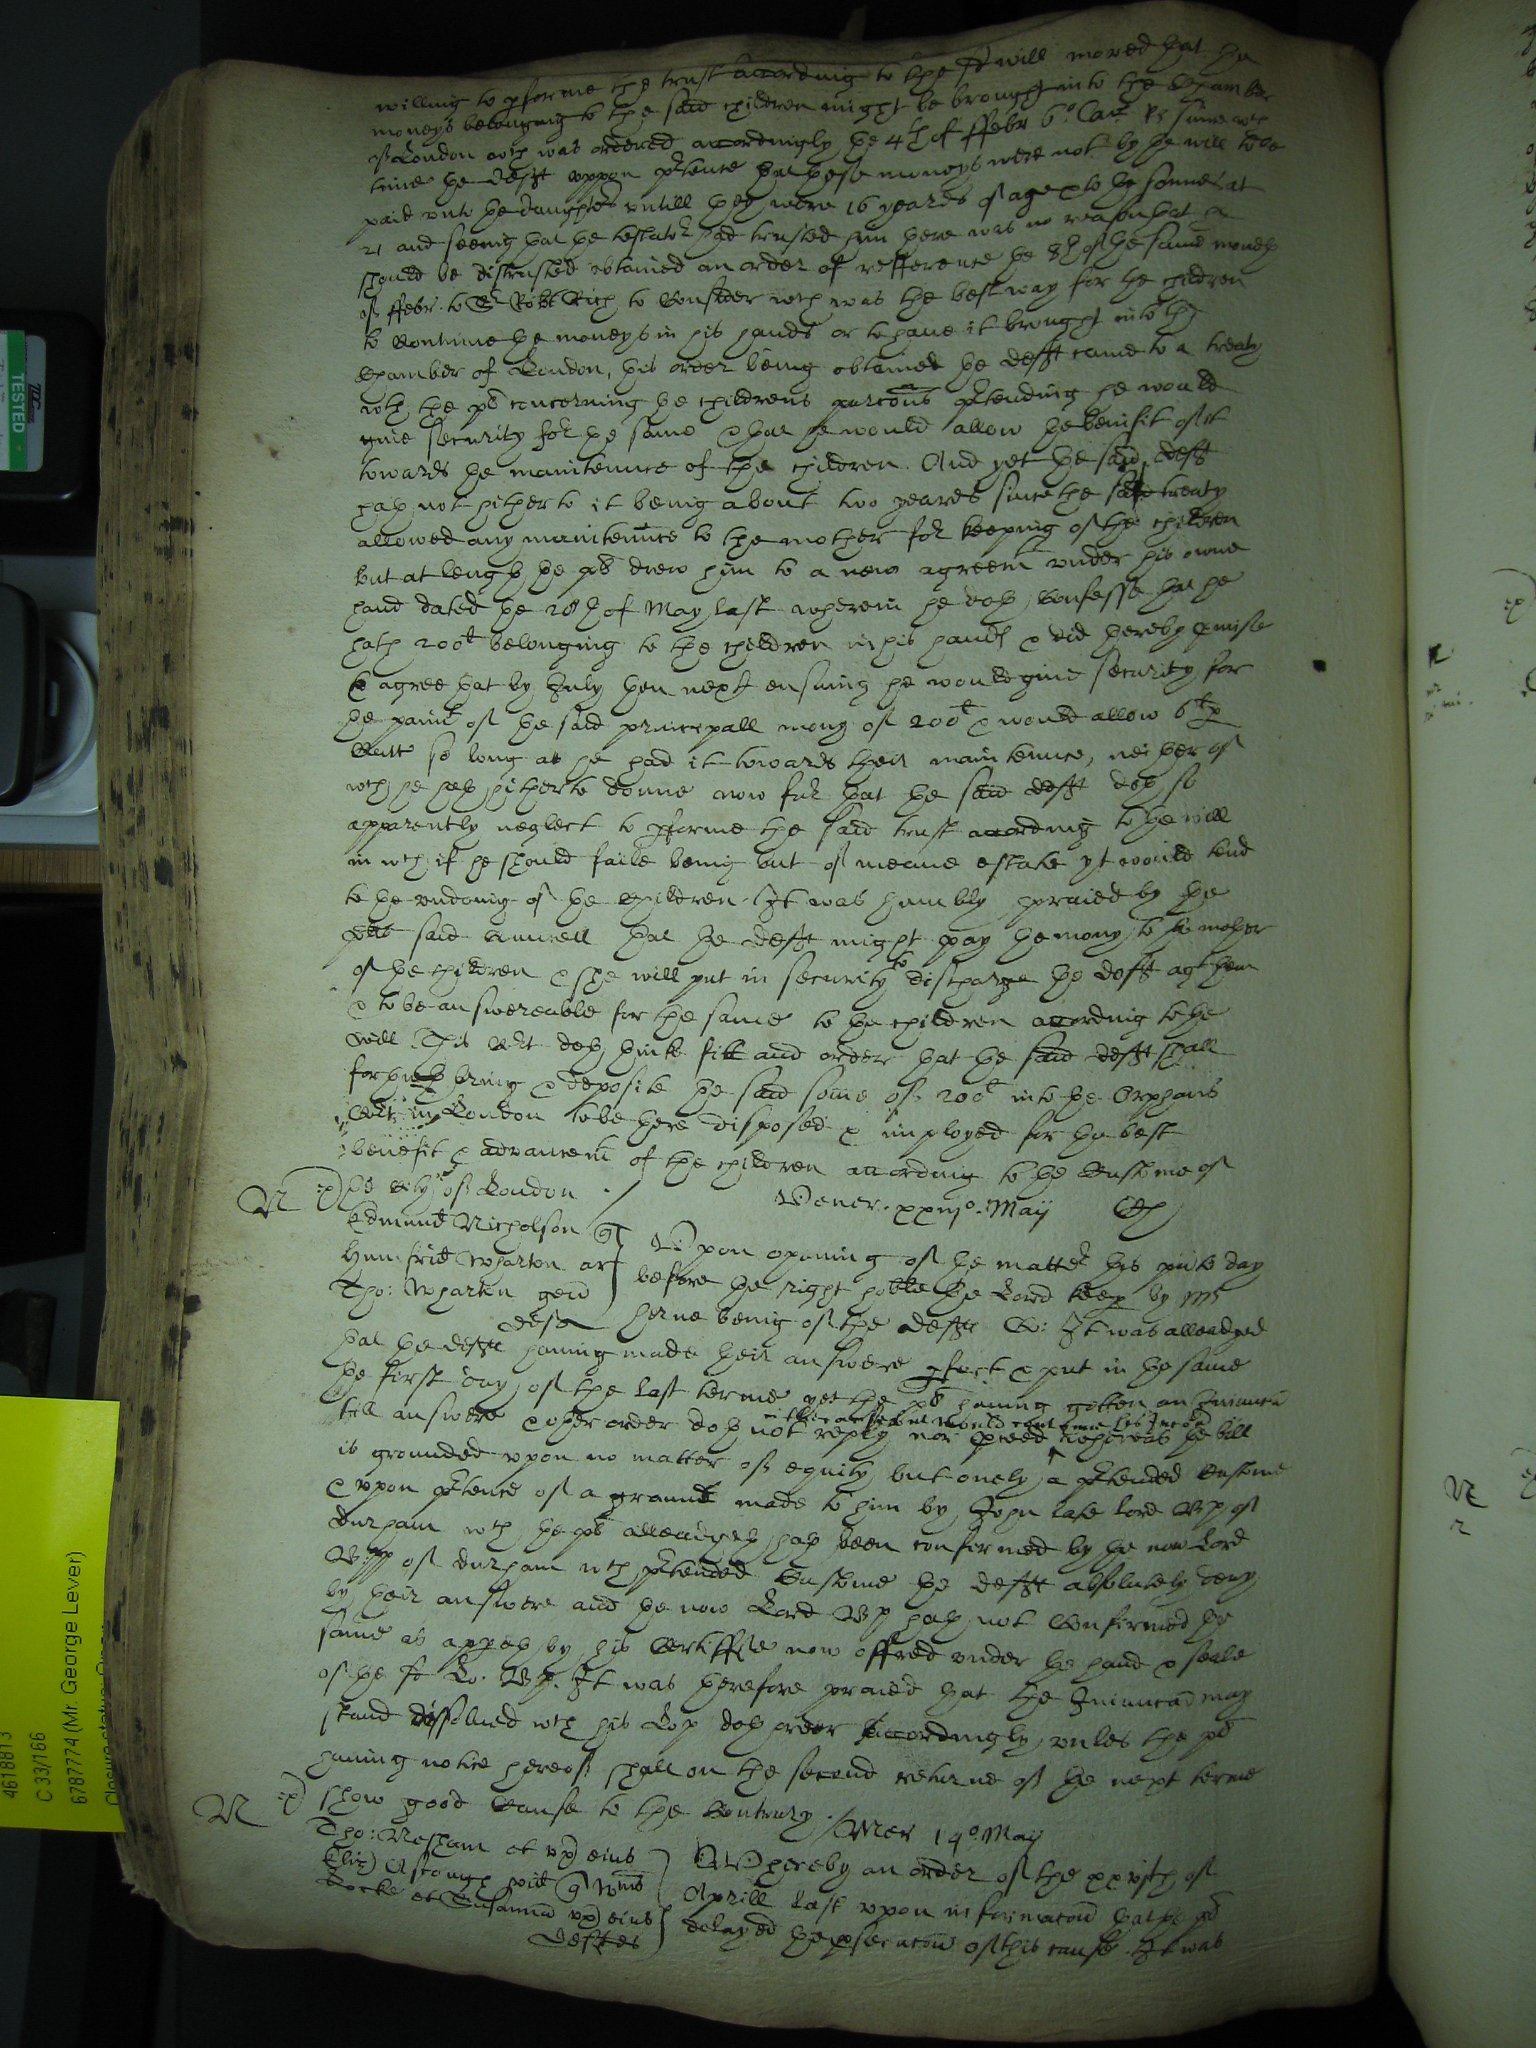 willing to pforme the trust according to the sd will moved that the
moneys belonging to the said children might be brought into the Chamber
of London wch was ordered accordingly the 4th of ffebr 6o Car Rs since wch
time the defft uppon ptence that these moneys were not by the will to be
paid unto the daughters untill they were 16 yeares of age & to the sonnes at
21 and seeing that the testator had trusted him there was no reason that he
should be distrusted obtained an order of refference the 8th of the same moneth
of ffebr to Sr Robt Rich to Consider wch was the best way for the children
to Continue the moneys in his hands or to have it brought into the
Chamber of London, this order being obtained the defft came to a treaty
wth the pt concerning the childrens porcons ptending he would
give security for the same & that he would allow the benifit of it
towards the maintennce of the children. And yet the said defft
hath not hitherto it being about two yeares since the said treaty
allowed any maintennce to the mother for keeping of the children
but at length the pt drew him to a new agreemt under his owne
hand dated the 28th of May last wherein he doth Confesse that he
hath 200l belonging to the children in his hands & did thereby pmise
& agree that by July then next ensuing he would give security for
the paimt of the said princepall mony of 200l & would allow 6l p
Cent so long as he had it towards their maintennce, neither of
wch he hath hitherto donne now for that the said defft doth so
apparently neglect to pforme the said trust according to the will
in wch if he should faile being but of meane estate yt would tend
to the undoing of the Children. It was humbly praied by the
plts said Councell that the defft might pay the mony to the mother
of the children & she will put in security to discharge the defft agt them
& to be answereable for the same to the children according to the
will. This Crt doth thinke fitt and order that the said defft shall
forthwth bring & deposite the said some of 200l into the Orphans
Crt in London to be there disposed & imployed for the best
benefit & advancemt of the children according to the Custome of
the City of London
Vener. xxiijo. May
Edmund Nicholson q
Humfrid Wharton ar
Tho: Wharton gen
defts
Upon opening of the matter this pnte day
before the right hoble the Lord Keep by Mr
Herne being of the deffts Co: It was alleadged
that the deffts having made their answere pfect & put in the same
the first day of the last terme yet the pt having gotten an Iniuncon
till answere & other order doth not reply nor pceed whereas the bill
is grounded upon no matter of equity but onely a ptended Custome
& upon ptence of a graunt made to him by John late Lord Bp of
Durham wch the pt alleadgeth hath been confirmed by the now Lord
Bpp of Durham wch ptended Custome the deffts absolutely deny
by their answere and the now Lord Bp hath not Confirmed the
same as appeth by his Certifficte now offred under the hand & seale
of the sd Lo. Bp. It was therefore praied that the Iniuncon may
stand dissolved wch his Lop doth order accordingly unles the pt
having notice hereof shall on the second returne of the next terme
show good Cause to the Contrary./
Mer 14o. May
Tho: Nesham et ux eius
Eliz Ascough vid q Wms
Locke et Susanna ux eius
defftes
Whereby an order of the xxvjth of
Aprill last upon informacon that the pt
delayed the psecucon of this cause. It was
TESTED
4618813
C 33/166
6787774 (Mr. George Lever)